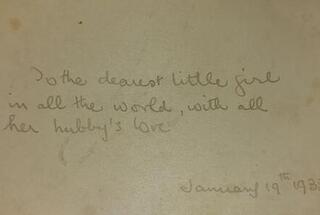 To the dearest little girl
in all the world, with all
her hubby's love
January 19th